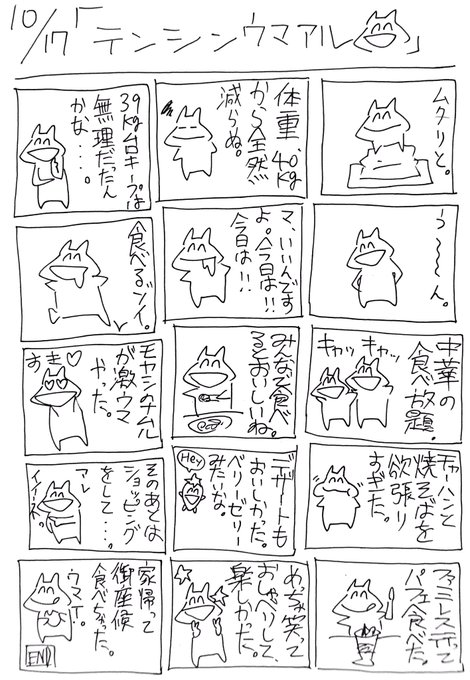 10/17「テンシンウマアル」
ムクリと。
体重、40kg
から全然
減らぬ。
39kg台キープは
無理だったん
かな・・・。
う〜〜ん。
マ、いいんです
よ。今日は!!
今日は!!
食べるゾイ。
中華の
食べ放題。
キャッ
キャッ
みんなで食べ
るとおいしいね。
モヤシのナムル
が激ウマ
やった。
すき♡
チャーハンと
焼そばを
欲張り
すぎた。
デザートも
おいしかった。
ベリーゼリー
みたいな。
Hey
そのあとは
ショッピング
をして・・・。
アレ
ファミレス行って
パフェ食べた。
めっちゃ笑って
おしゃべりして、
楽しかった。
家帰って
御座候
食べちゃった。
ウマイ。
END